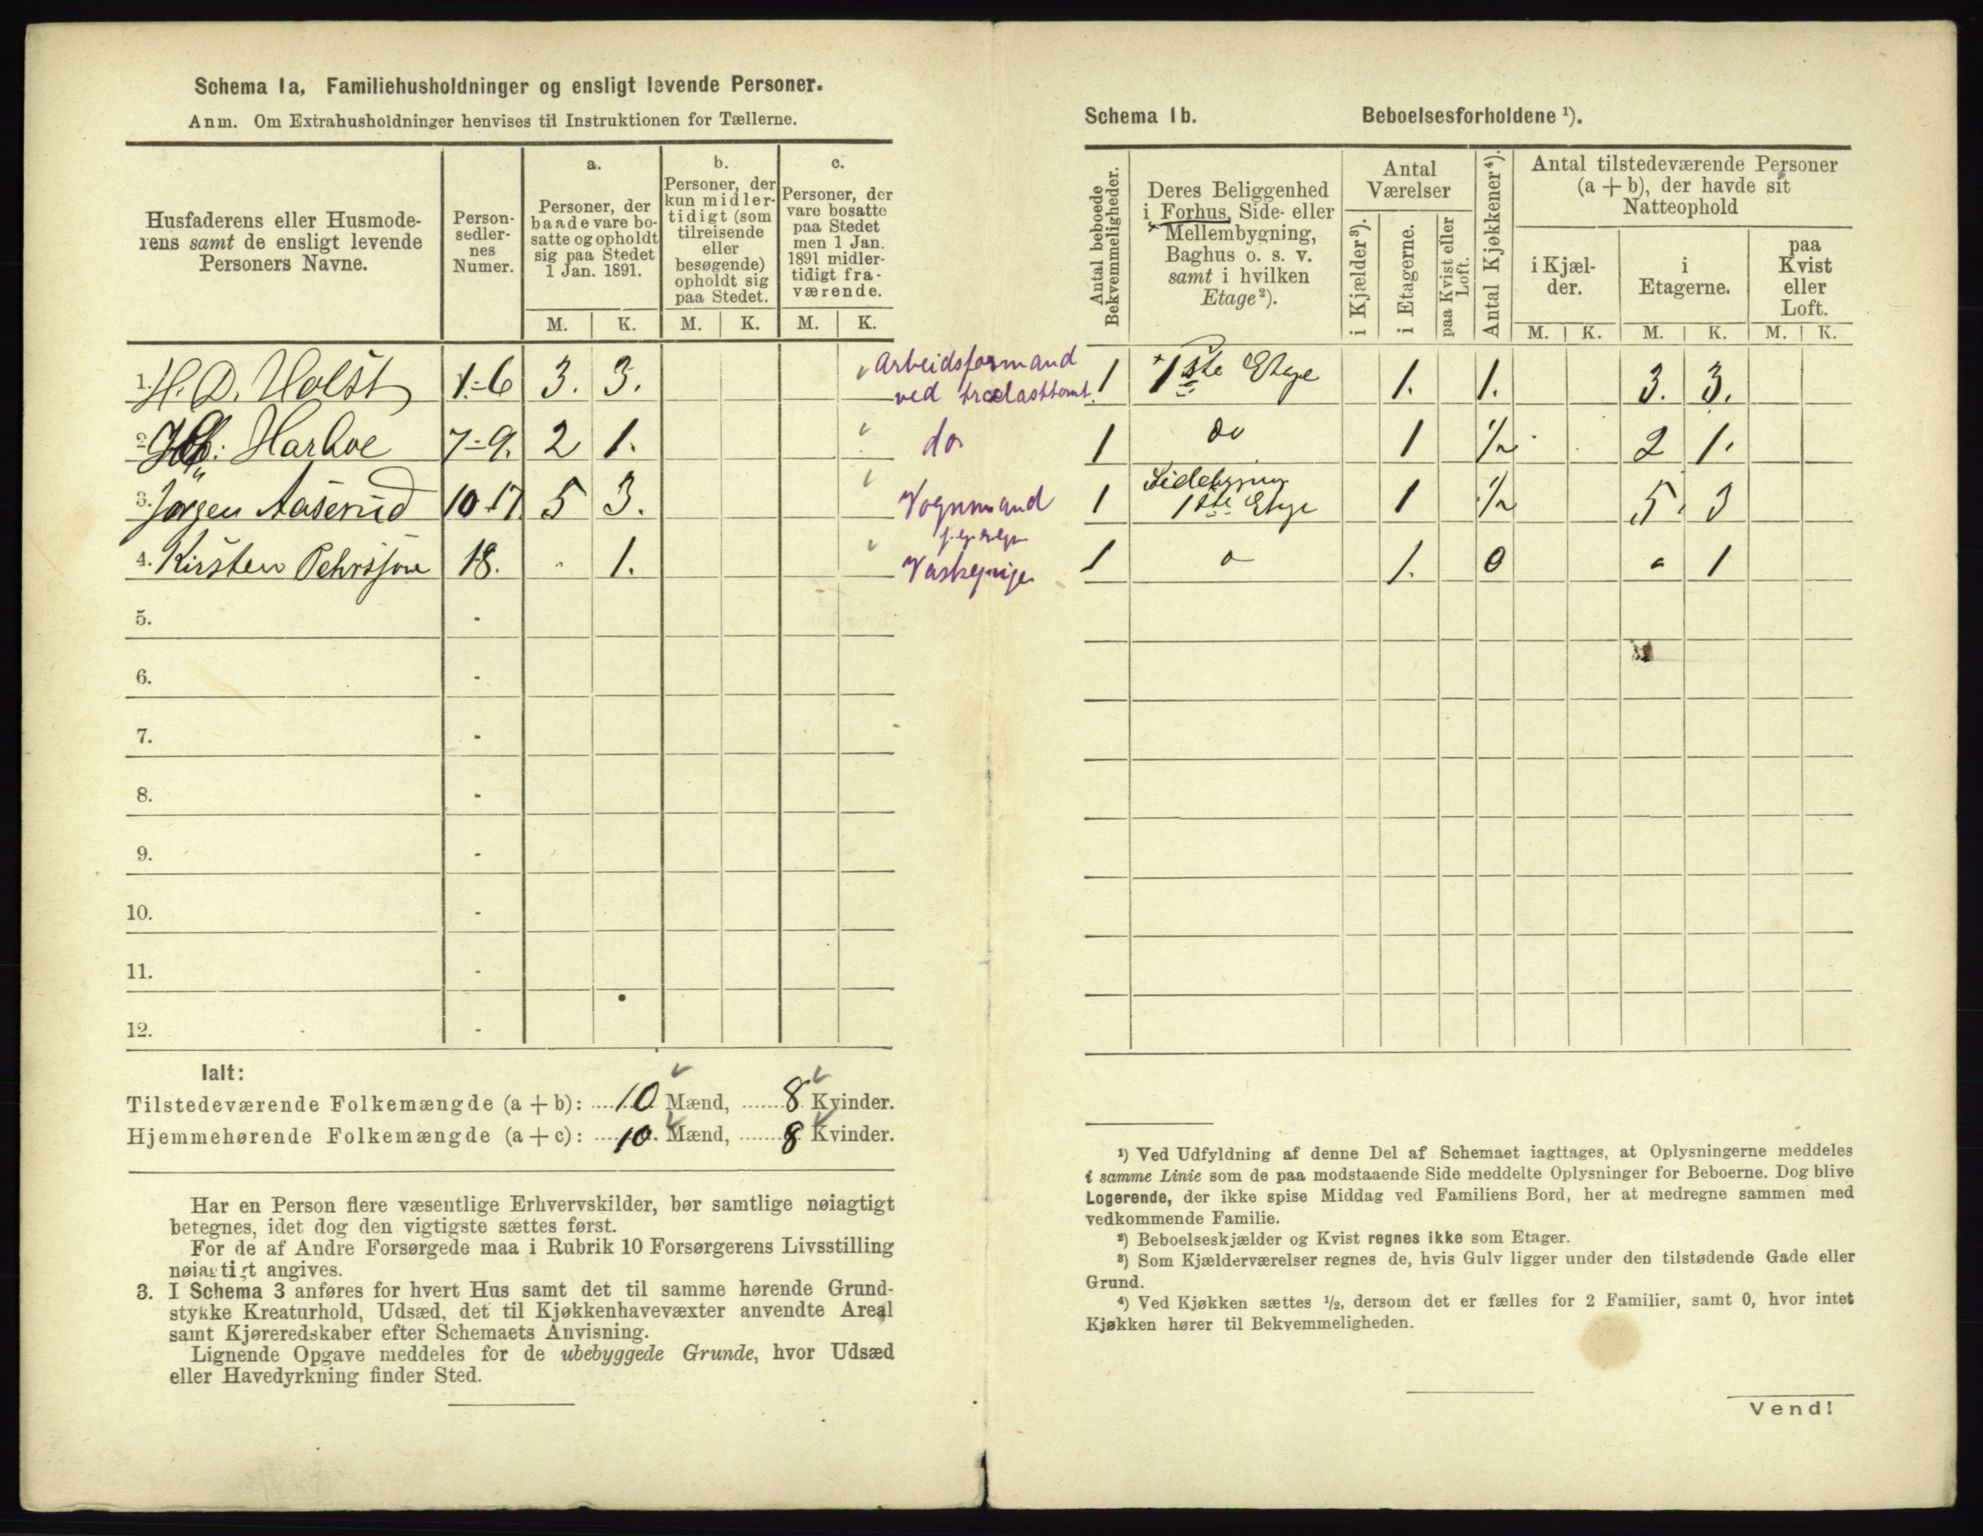 Schema 1a, Familiehusholdninger og ensligt levende Personer.
Anm. Om Extrahusholdninger henvises til Instruktionen for Tællerne.
Husfaderens eller Husmoderens samt de ensligt levende Personers Navne.
Personsedlernes Numer.
a.
Personer, der baade vare bosatte og opholdt sig paa Stedet 1 Jan. 1891.
b.
Personer, der kun midlertidigt (som tilreisende eller besøgende) opholdt sig paa Stedet.
c.
Personer, der vare bosatte paa Stedet men 1 Jan. 1891 midlertidigt fraværende.
M. K. M. K. M. K.
1. H. D. Holst 1-6 3. 3. Arbeidsformand
ved trælasttomt.
2. Harboe 7-9. 2 1. do
3. Jørgen Aaserud 10-17 5 3. Vognmand
4. Kirsten Pehrsson 18. 1.
5. -
6. -
7. -
8. -
9. -
10. -
11. -
12. -
Ialt:
Tilstedeværende Folkemængde (a + b): 10 Mænd, 8 Kvinder.
Hjemmehørende Folkemængde (a + c): 10 Mænd, 8 Kvinder.
Har en Person flere væsentlige Erhvervskilder, bør samtlige nøiagtigt
betegnes, idet dog den vigtigste sættes først.
For de af Andre Forsørgede maa i Rubrik 10 Forsørgerens Livsstilling
nøiagtigt angives.
3. I Schema 3 anføres for hvert Hus samt det til samme hørende Grund-
stykke Kreaturhold, Udsæd, det til Kjøkkenhavevæxter anvendte Areal
samt Kjøreredskaber efter Schemaets Anvisning.
Lignende Opgave meddeles for de ubebyggede Grunde, hvor Udsæd
eller Havedyrkning finder Sted.
Schema 1b. Beboelsesforholdene ¹).
Antal beboede Bekvemmeligheder.
Deres Beliggenhed i Forhus, Side- eller Mellembygning, Baghus o. s. v. samt i hvilken Etage²).
Antal Værelser
i Kjælder³).
i Etagerne.
paa Kvist eller Loft.
Antal Kjøkkener⁴).
Antal tilstedeværende Personer (a + b), der havde sit Natteophold
i Kjælder.
i Etagerne.
paa Kvist eller Loft.
M. K. M. K. M. K.
1 1ste Etage 1. 1. 3. 3.
1 do 1 1/2 2 1.
1 Sidebygn 1ste Etage 1 1/2 5 3
1 1. 0 1
¹) Ved Udfyldning af denne Del af Schemaet iagttages, at Oplysningerne meddeles
i samme Linie som de paa modstaaende Side meddelte Oplysninger for Beboerne. Dog blive
Logerende, der ikke spise Middag ved Familiens Bord, her at medregne sammen med
vedkommende Familie.
²) Beboelseskjælder og Kvist regnes ikke som Etager.
³) Som Kjælderværelser regnes de, hvis Gulv ligger under den tilstødende Gade eller
Grund.
⁴) Ved Kjøkken sættes ½, dersom det er fælles for 2 Familier, samt 0, hvor intet
Kjøkken hører til Bekvemmeligheden.
Vend!